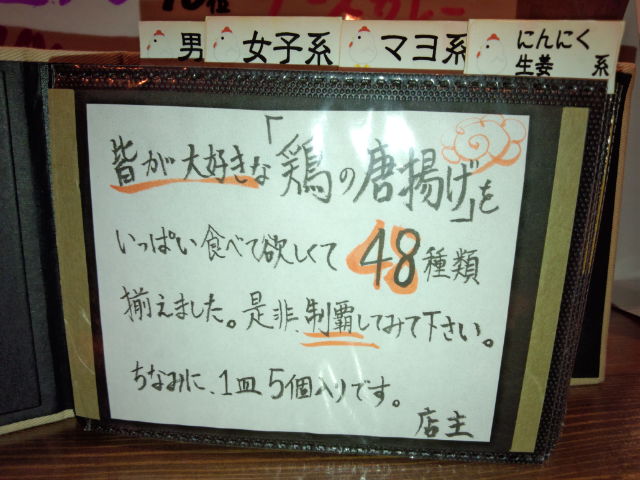 男
女子系
マヨ系
にんにく
生姜 系
皆が大好きな「鶏の唐揚げ」を
いっぱい食べて欲しくて48種類
揃えました。是非、制覇してみて下さい。
ちなみに、1皿5個入りです。
店主